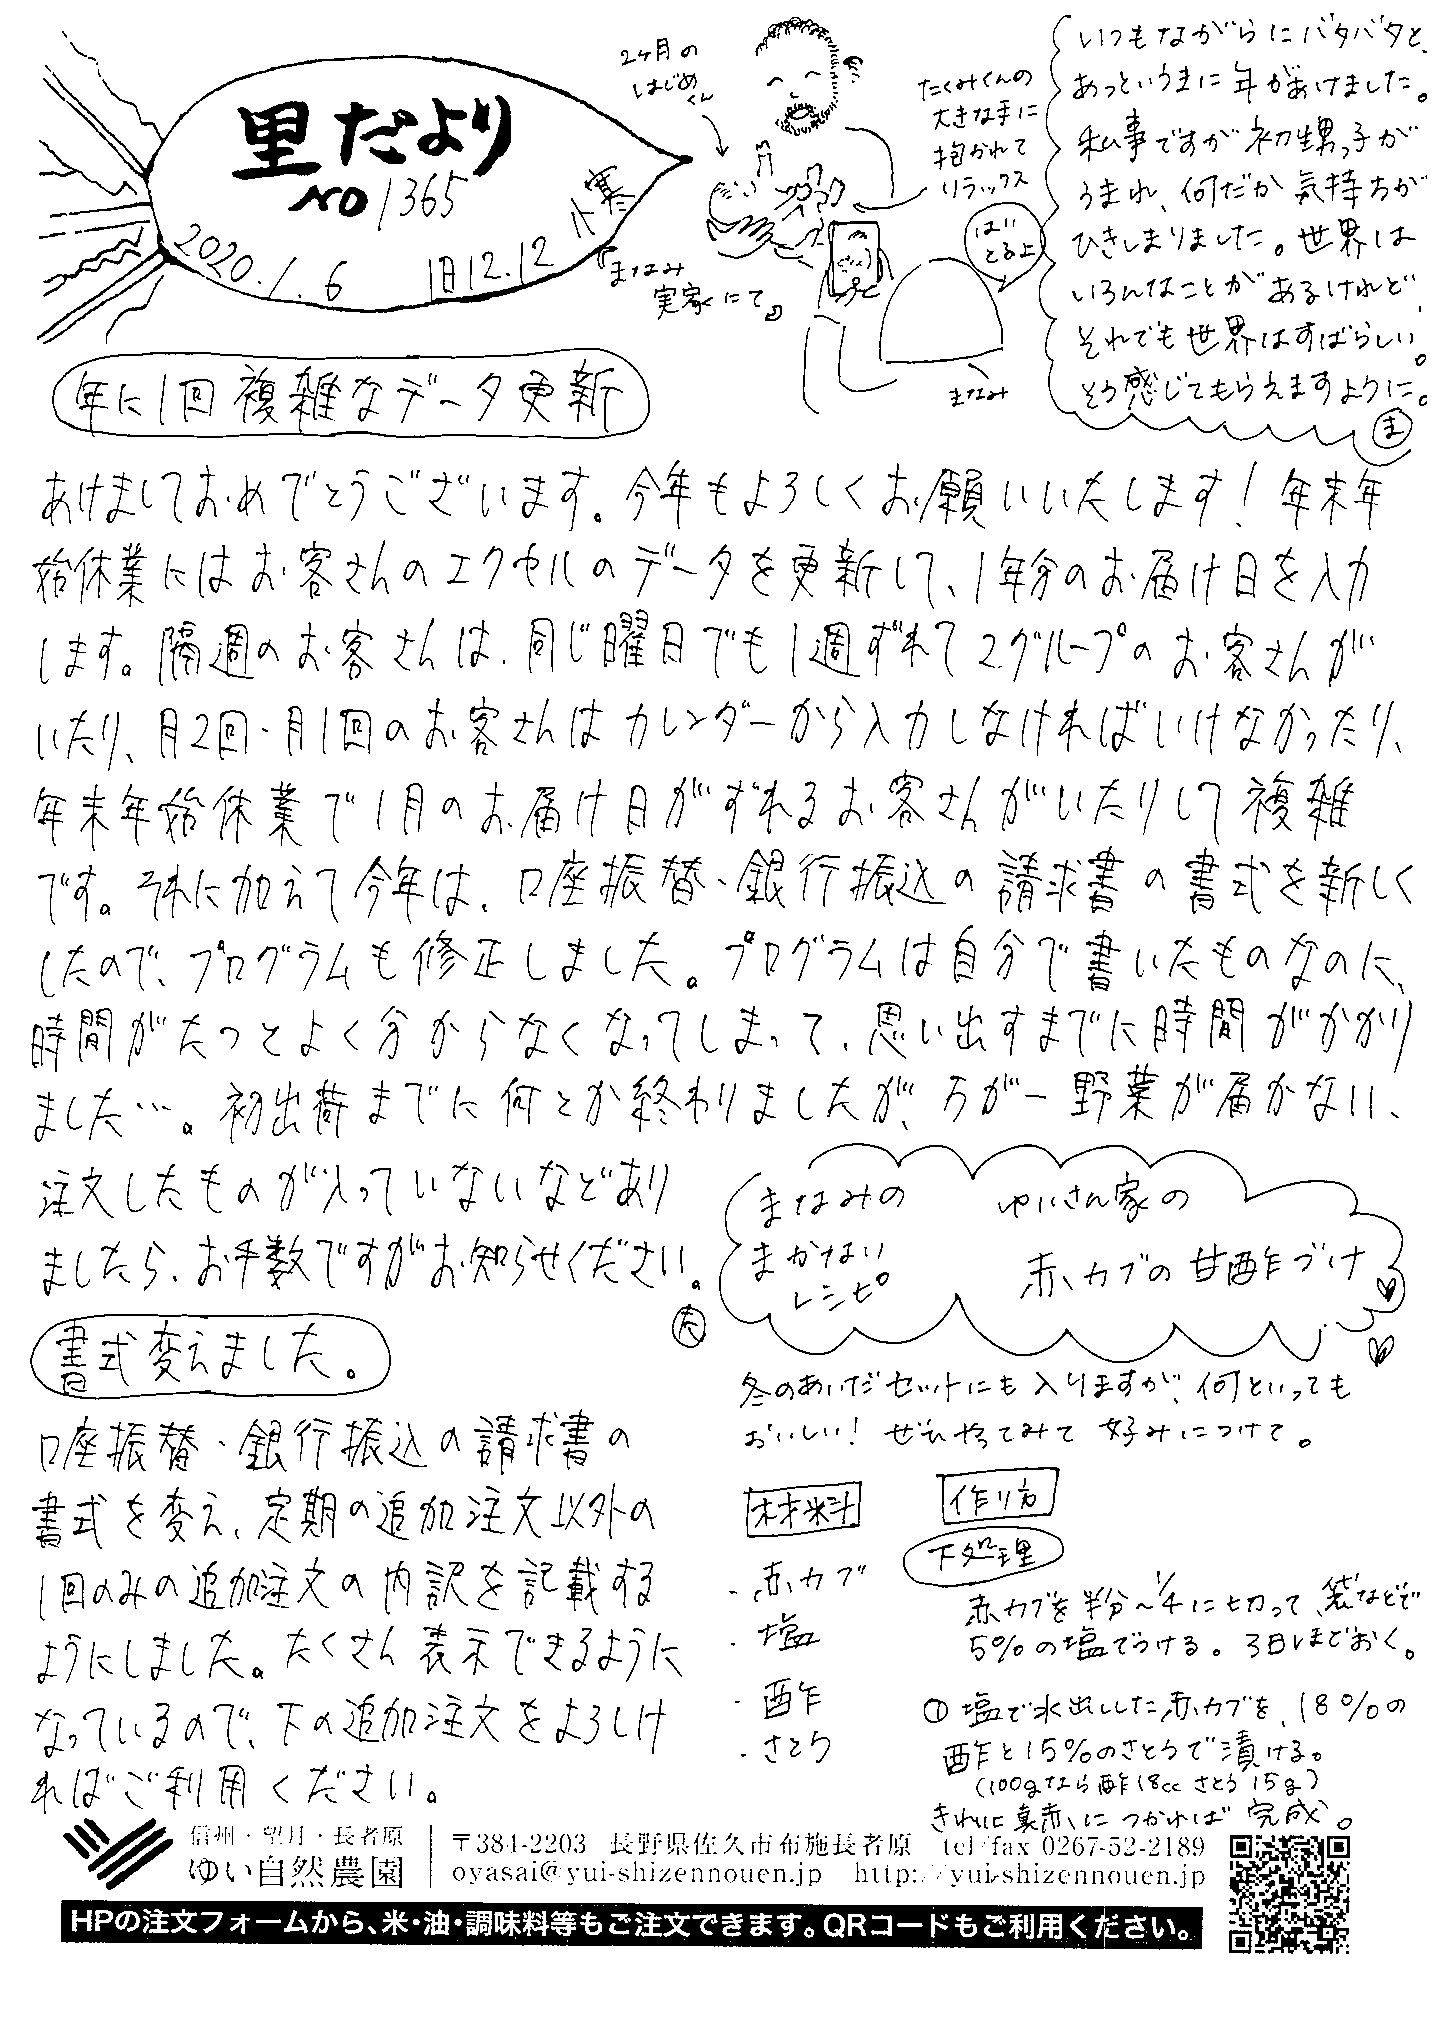 里だより
NO 1365
2020.1.6 旧12.12 小寒
2ヶ月の
はじめ
くん
たくみくんの
大きな手に
抱かれて
リラックス
『まなみ
実家にて。』
はい
とるよ
まなみ
いつもながらにバタバタと、
あっというまに年があけました。
私事ですが初甥っ子が
うまれ、何だか気持ちが
ひきしまりました。世界は
いろんなことがあるけれど、
それでも世界はすばらしい。
そう感じてもらえますように。
ま
年に1回複雑なデータ更新
あけましておめでとうございます。今年もよろしくお願いいたします！年末年
始休業にはお客さんのエクセルのデータを更新して、1年分のお届け日を入力
します。隔週のお客さんは、同じ曜日でも1週ずれて2グループのお客さんが
いたり、月2回・月1回のお客さんはカレンダーから入力しなければいけなかったり、
年末年始休業で1月のお届け日がずれるお客さんがいたりして複雑
です。それに加えて今年は、口座振替・銀行振込の請求書の書式を新しく
したので、プログラムも修正しました。プログラムは自分で書いたものなのに、
時間がたつとよく分からなくなってしまって、思い出すまでに時間がかかり
ました…。初出荷までに何とか終わりましたが、万が一野菜が届かない、
注文したものが入っていないなどあり
ましたら、お手数ですがお知らせください。
た
書式変えました。
口座振替・銀行振込の請求書の
書式を変え、定期の追加注文以外の
1回のみの追加注文の内訳を記載する
ようにしました。たくさん表示できるように
なっているので、下の追加注文をよろしけ
ればご利用ください。
まなみの
まかない
レシピ
ゆいさん家の
赤カブの甘酢づけ
冬のあいだセットにも入りますが、何といっても
おいしい！ぜひやってみて好みにつけて。
材料
・赤カブ
・塩
・酢
・さとう
作り方
下処理
赤カブを半分〜1/4に切って、袋などで
5%の塩でつける。3日ほどおく。
① 塩で水出しした赤カブを、18%の
酢と15%のさとうで漬ける。
(100gなら酢18cc さとう15g)
きれいに真赤につかれば完成。
信州・望月・長者原
ゆい自然農園
〒384-2203 長野県佐久市布施長者原 tel/fax 0267-52-2189
oyasai@yui-shizennouen.jp http://yui-shizennouen.jp
HPの注文フォームから、米・油・調味料等もご注文できます。QRコードもご利用ください。